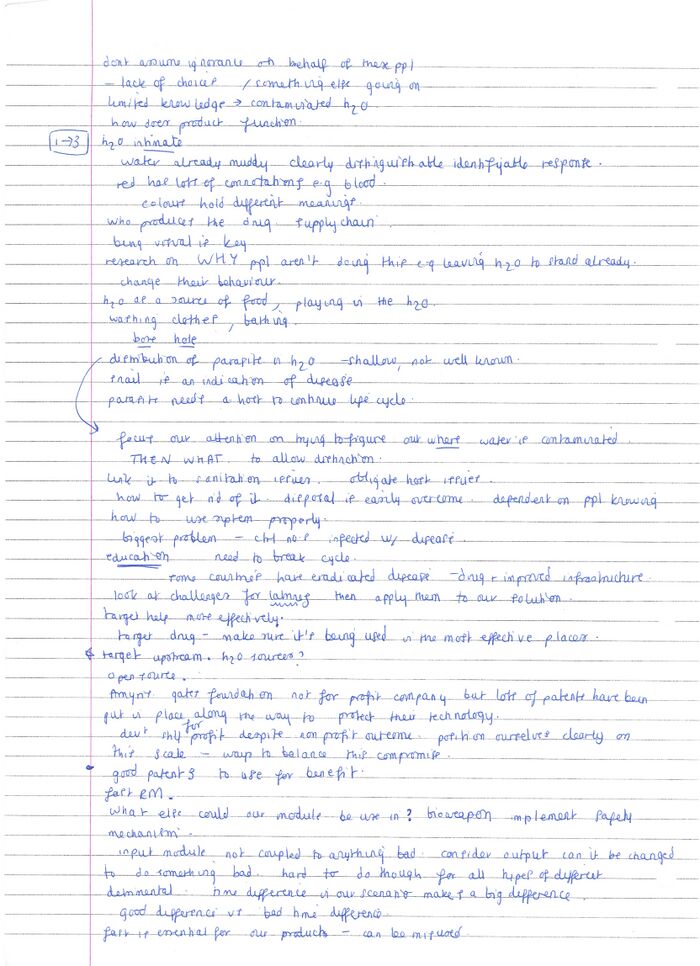 dont assume ignorance on behalf of these ppl
– lack of choices / something else going on
limited knowledge → contaminated h2o
how does product function.
1→3 h2o intimate
water already muddy clearly distinguishable identifyable response.
red has lots of connotations e.g blood.
colours hold different meanings.
who produces the drug. supply chain.
being visual is key
research on WHY ppl aren't doing this e.g leaving h2o to stand already.
change their behaviour.
h2o as a source of food, playing in the h2o.
washing clothes, bathing.
bore hole
distribution of parasite in h2o – shallow, not well known.
snail is an indication of disease
parasite needs a host to continue life cycle.
focus our attention on trying to figure out where water is contaminated.
THEN WHAT. to allow distinction.
link it to sanitation issues. obligate host issues.
how to get rid of it. disposal is easily overcome. dependent on ppl knowing
how to use system properly.
biggest problem – infected w/ disease.
education need to break cycle.
some countries have eradicated disease – drug + improved infrastructure.
look at challenges for then apply them to our solution.
target help more effectively.
target drug – make sure it's being used in the most effective places.
target upstream. h2o sources?
open source.
gates foundation not for profit company but lots of patents have been
put in place along the way to protect their technology.
dev't still for profit despite non profit outcome. position ourselves clearly on
this scale – ways to balance this compromise.
• good patents to use for benefit.
fast RM.
what else could our module be use in? bioweapon implement safety
mechanism.
input module not coupled to anything bad. consider output can it be changed
to do something bad. hard to do though for all types of different
detrimental. time difference in our scenario makes a big difference.
good difference vs bad time difference.
fast is essential for our products – can be misused.